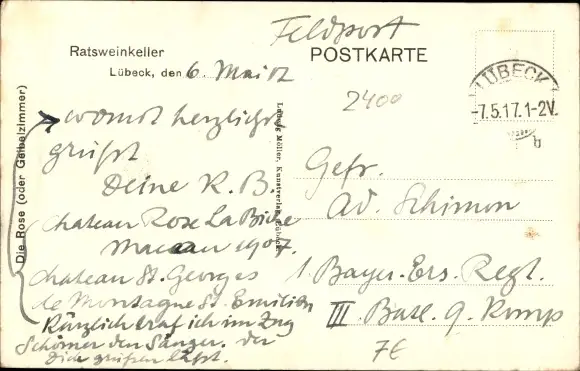 Feldpost
Ratsweinkeller
POSTKARTE
Lübeck, den 6. Mai 17
2400
LÜBECK
-7.5.17.1-2V.
Die Rose (oder Geibelzimmer)
womit herzlichst
grüßt
Deine K. B.
Chateau Rose La Biche
Macau 1907.
Chateau St. Georges
de Montagne St. Emilion
Kürzlich traf ich im Zug
Schörner den Sänger. der
Dich grüßen läßt.
Ludwig Möller, Kunstverlag, Lübeck.
Gefr.
Ad. Schimon
1. Bayer. Ers. Regt.
III. Batl. 9. Komp
7E